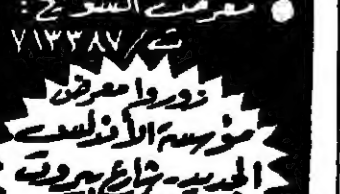 ● معرض الشويخ:
ت/ ٧١٣٣٨٧
زوروا معرض
مؤسسة الأندلس
الجديد - شارع بيروت